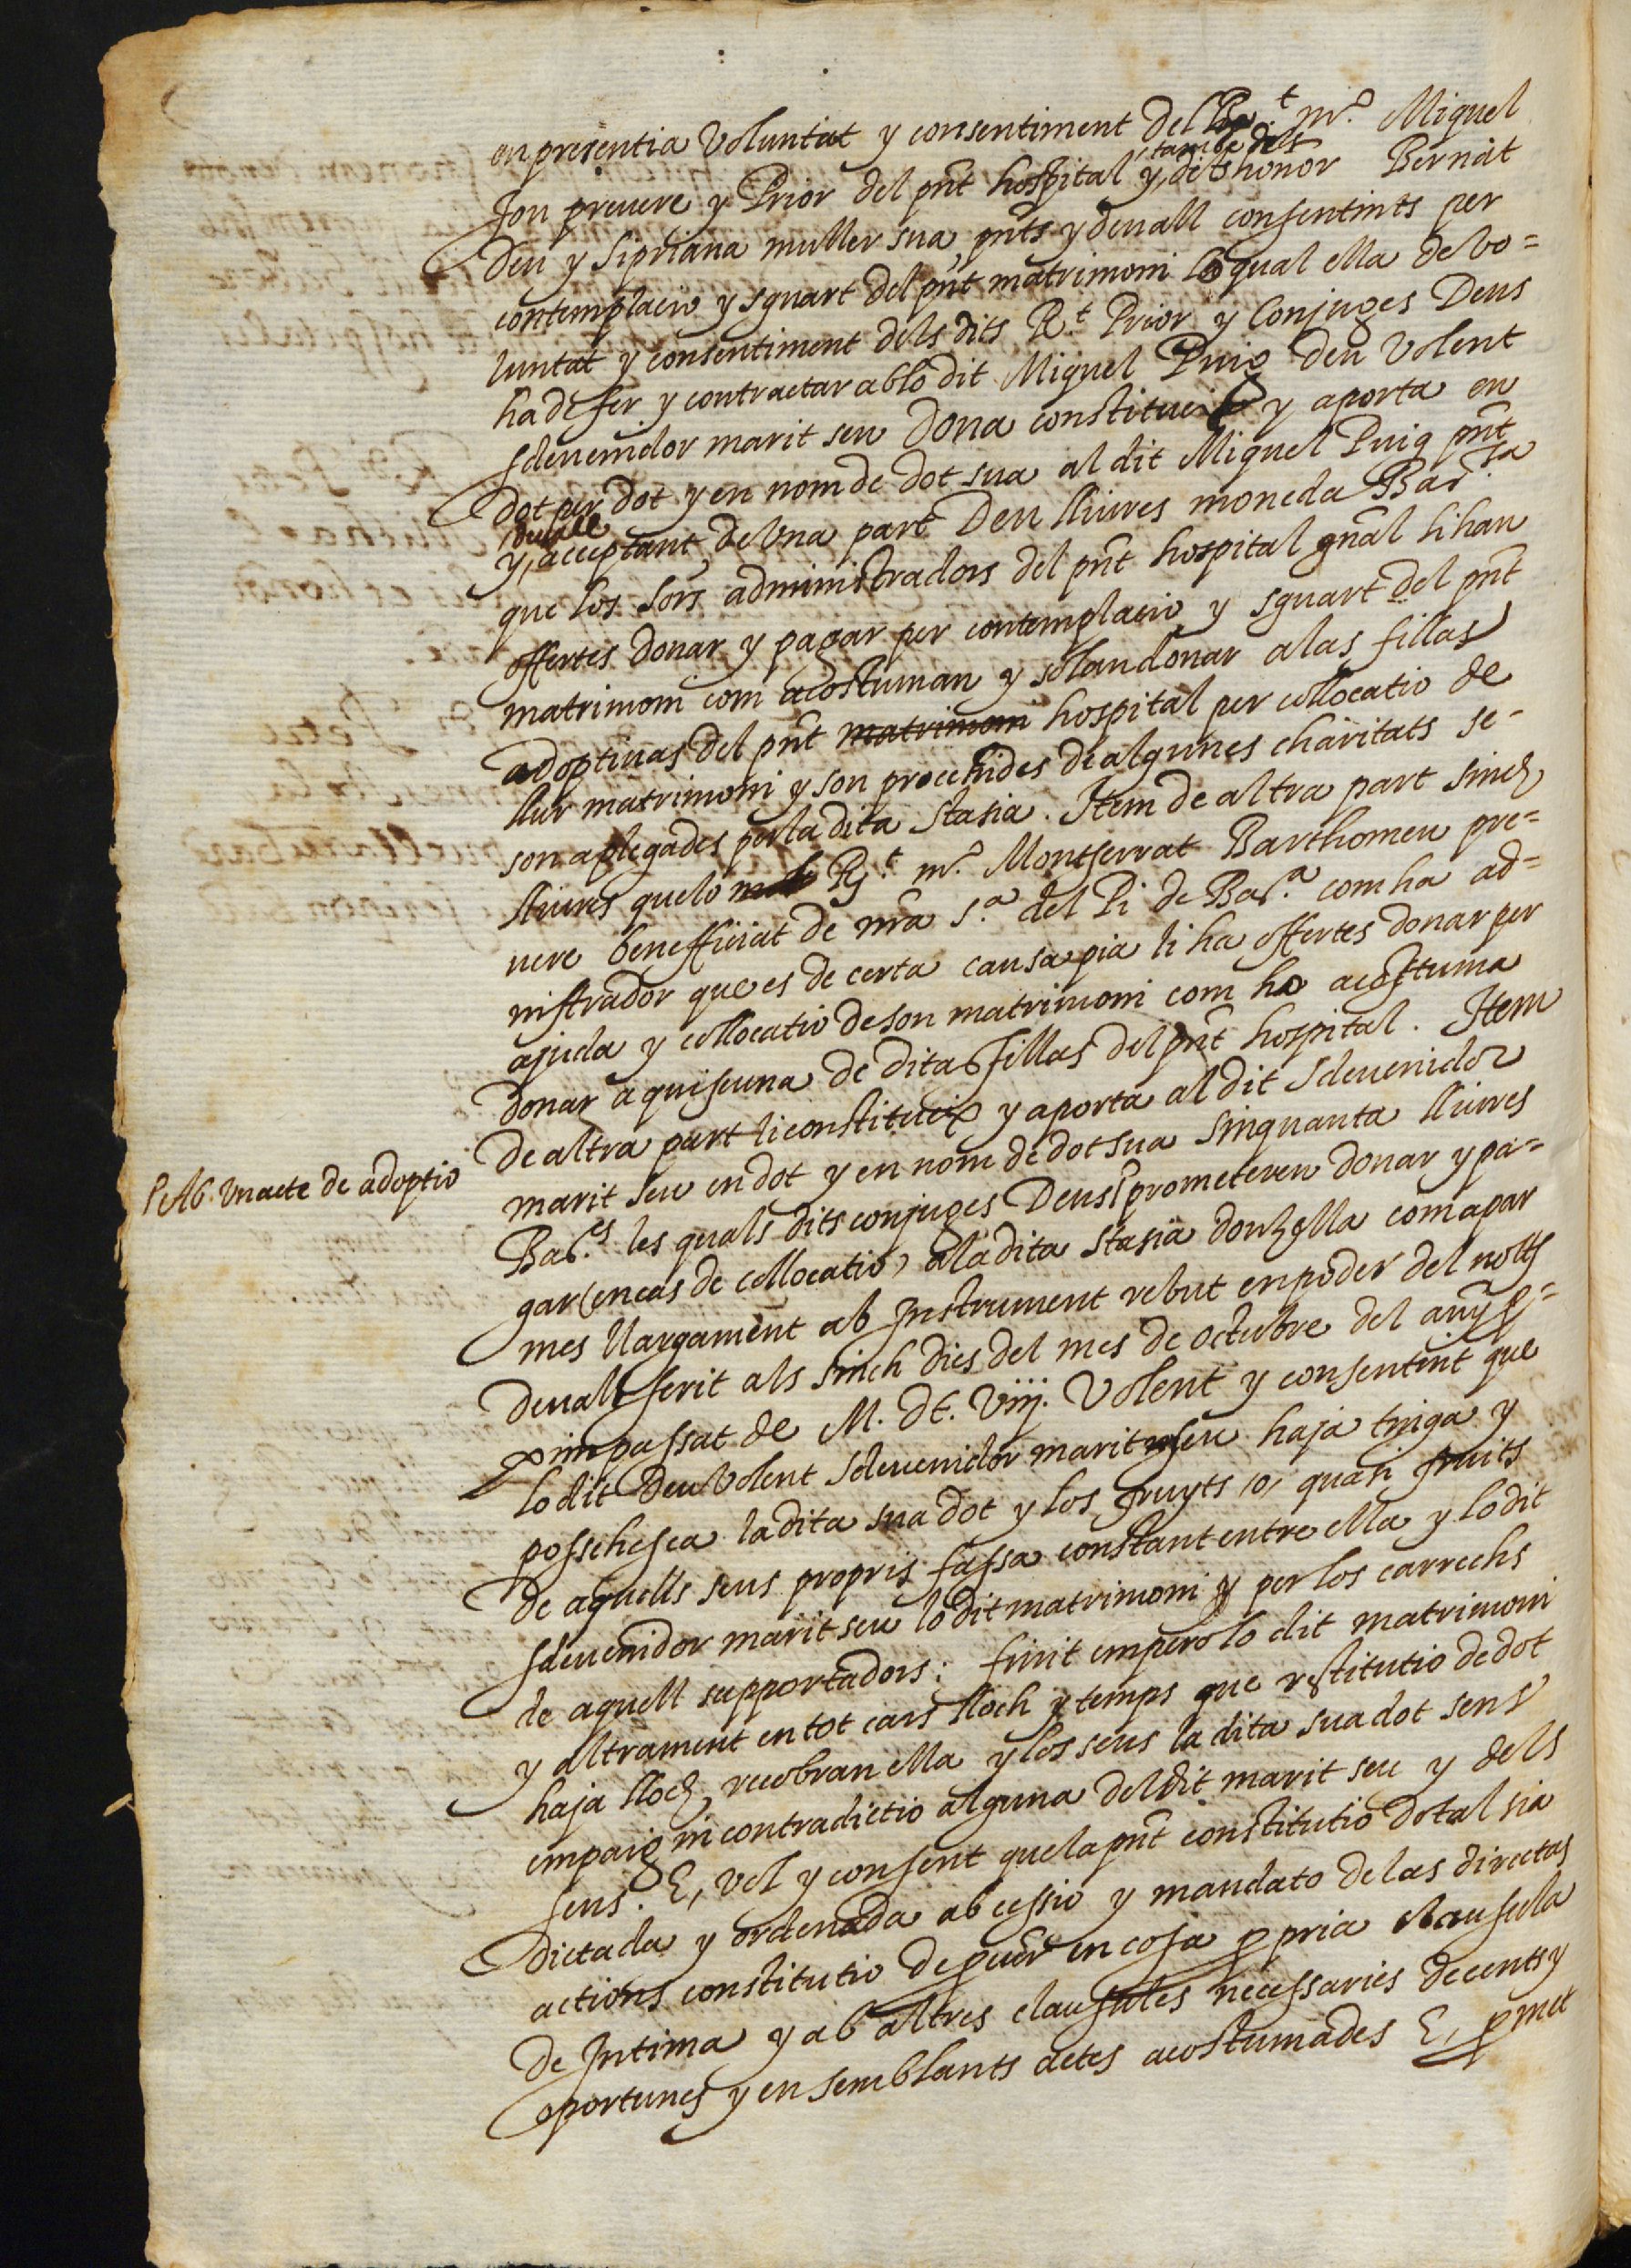 en presentia voluntat y consentiment del R.t m.º Miquel
Jou prevere y Prior del pnt hospital y, també dels dits honor Bernat
Deu y Sipriana muller sua pnts y devall consentints per
contemplacio y sguart del pnt matrimoni lo qual ella de vo=
luntat y consentiment dels dits R.t Prior y Conjuges Deus
ha de fer y contractar ab lo dit Miquel Puig Deu volent
sdevenidor marit seu Dona constitueix y aporta en
dot per dot y en nom de dot sua al dit Miquel Puig pnt
y, devall acceptant, de una part Deu lliures moneda Bar.na
que los Sors administradors del pnt hospital gnal li han
offertes donar y pagar per contemplacio y sguart del pnt
matrimoni com acostuman y solan donar a las fillas
adoptivas del pnt matrimoni hospital per collocatio de
llur matrimoni y son procehides de algunes charitats se-
son aplegades per la dita Stasia. Item de altra part sinch
lliures que lo R.t m.º Montserrat Barthomeu pre=
vere benefficiat de nra S.a del Pi de Bar.a com ha ad=
nistrador que es de certa causa pia li ha offertes donar per
ajuda y collocatio de son matrimoni com ho acostuma
donar a quiscuna de ditas fillas del pnt hospital. Item
de altra part li constitueix y aporta al dit sdevenidor
marit seu en dot y en nom de dot sua sinquanta lliures
P Ab un acte de adoptio
Bar.es les quals dits conjuges Deus prometeren donar y pa=
gar (en cas de collocatio) a la dita Stasia donzella com apar
mes llargament ab Instrument rebut en poder del nott
devall scrit als sinch dies del mes de octubre del any p=
oxim passat de M. DC. Viij. Volent y consentint que
lo dit Deu volent sdevenidor marit seu haja tinga y
possehesca la dita sua dot y los fruyts, o, quasi fruits
de aquells seus propris fassa constant entre ella y lo dit
sdevenidor marit seu lo dit matrimoni y per los carrechs
de aquell supportadors: finit empero lo dit matrimoni
y altrament en tot cars lloch y temps que restitutio de dot
haja lloch, recobran ella y los seus la dita sua dot sens
empaig ni contradictio alguna del dit marit seu y dels
seus. E, vol y consent que la pnt constitutio dotal sia
dictada y ordenada ab cessio y mandato de las directas
actions constitutio de pcur en cosa ppria clausula
de Intima y ab altres clausules necessaries decents y
oportunes y en semblants actes acostumades E, pmet